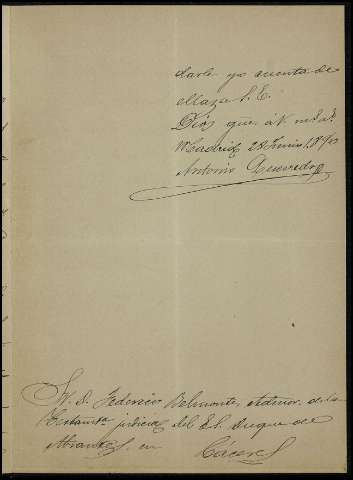 darle yo cuenta de
ella a S. E.
Dios gue. á V. ms. as.
Madrid 28 Junio
Antonio Quevedo
Sr. D. Federico Belmonte, Admor. de la
Testamta. judicial del E. S. Duque de
Abrantes en Cáceres